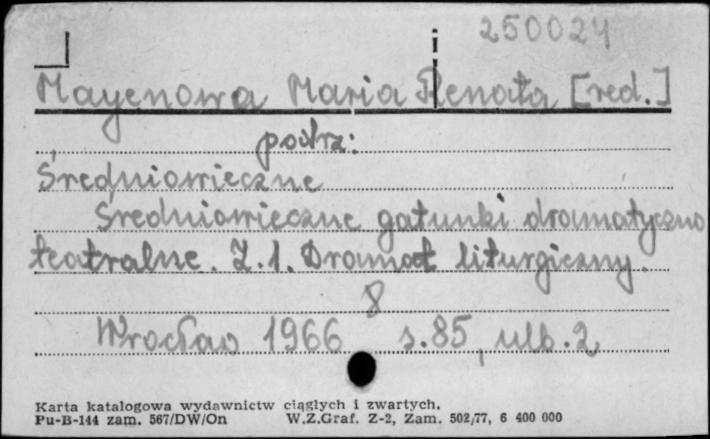 250024
Mayenowa Maria Renata [red.]
podrz:
Średniowieczne
Średniowieczne gatunki dramatyczno
teatralne. Z.1. Dramat liturgiczny.
8
Wrocław 1966 s.85, ulb.2
Karta katalogowa wydawnictw ciągłych i zwartych.
Pu-B-144 zam. 567/DW/On W.Z.Graf. Z-2, Zam. 502/77, 6 400 000